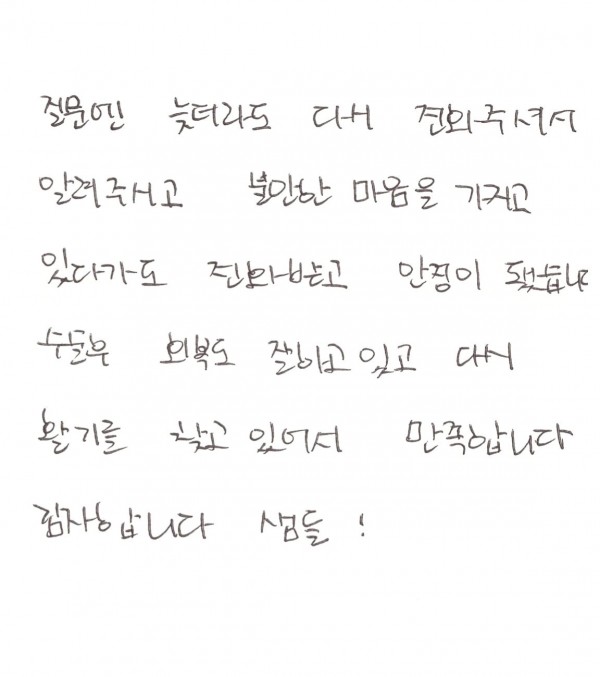 질문엔 늦더라도 다시 전화주셔서
알려주시고 불안한 마음을 가지고
있다가도 전화받고 안정이 됐습니다
수술후 회복도 잘하고있고 다시
활기를 찾고있어서 만족합니다
감사합니다 샘들!